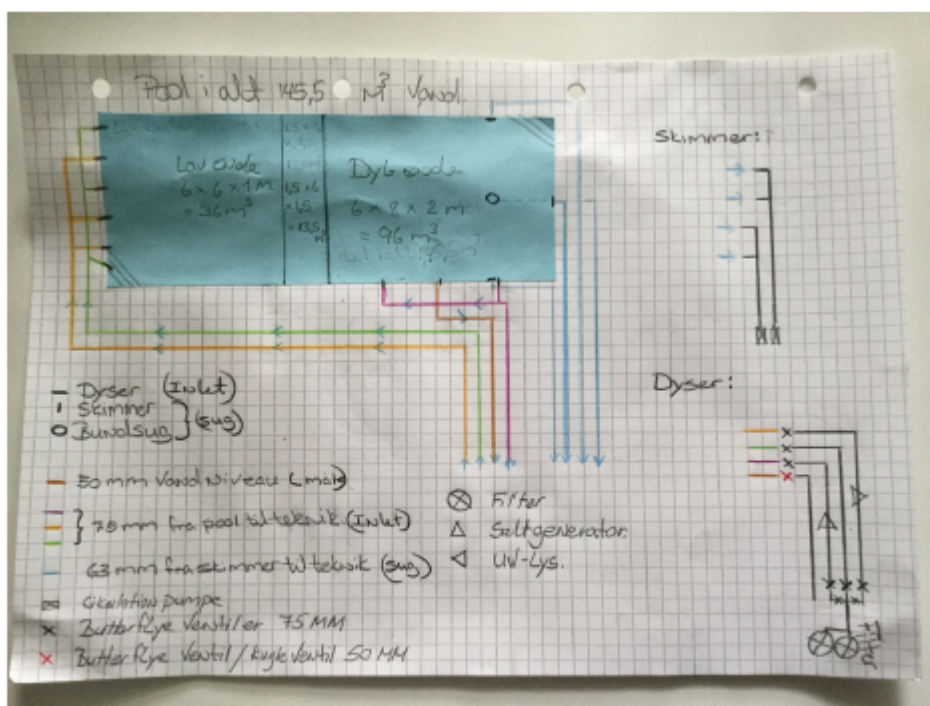 Pool i alt 145,5 M³ Vand.
Lav ende
6 x 6 x 1 m
= 36 m³
1,5 x 6
x 1,5
= 13,5
Dyb ende
6 x 8 x 2 m
= 96 m³
Skimmer:
Dyser:
Dyser (Inlet)
Skimmer
Bundsug
(sug)
50 mm Vand Niveau (max)
75 mm fra pool til teknik (Inlet)
63 mm fra skimmer til teknik (sug)
Cikulation pumpe
Butterflye Ventiler 75 MM
Butterflye Ventil / kugle ventil 50 MM
Filter
Saltgenerator.
UV-Lys.